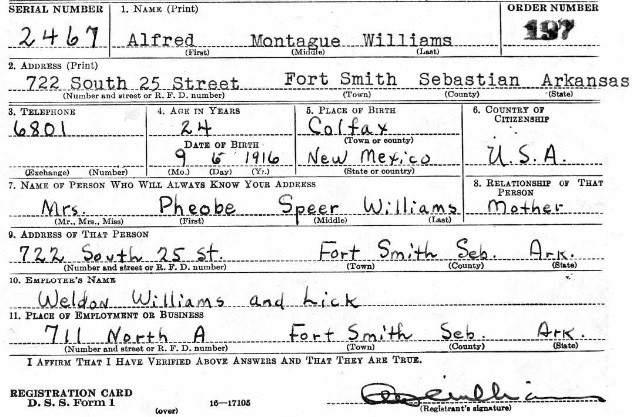 SERIAL NUMBER 1. NAME (Print) ORDER NUMBER
2467 Alfred Montague Williams 197
(First) (Middle) (Last)
2. ADDRESS (Print)
722 South 25 Street Fort Smith Sebastian Arkansas
(Number and street or R. F. D. number) (Town) (County) (State)
3. TELEPHONE 4. AGE IN YEARS 5. PLACE OF BIRTH 6. COUNTRY OF CITIZENSHIP
6801 24 Colfax
(Town or county)
DATE OF BIRTH
9 6 1916 New Mexico U.S.A.
(Exchange) (Number) (Mo.) (Day) (Yr.) (State or country)
7. NAME OF PERSON WHO WILL ALWAYS KNOW YOUR ADDRESS 8. RELATIONSHIP OF THAT PERSON
Mrs. Pheobe Speer Williams Mother
(Mr., Mrs., Miss) (First) (Middle) (Last)
9. ADDRESS OF THAT PERSON
722 South 25 St. Fort Smith Seb. Ark.
(Number and street or R. F. D. number) (Town) (County) (State)
10. EMPLOYER'S NAME
Weldon Williams and Lick
11. PLACE OF EMPLOYMENT OR BUSINESS
711 North A Fort Smith Seb. Ark.
(Number and street or R. F. D. number) (Town) (County) (State)
I AFFIRM THAT I HAVE VERIFIED ABOVE ANSWERS AND THAT THEY ARE TRUE.
REGISTRATION CARD
D. S. S. Form 1 16—17105
(over) (Registrant's signature)